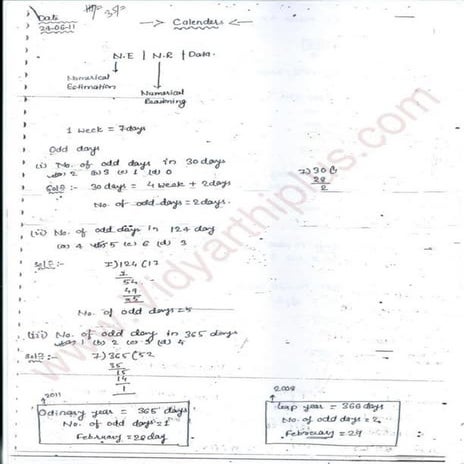 Date
24-06-11
Calenders
N.E | N.R | Data.
Numarical
Estimation
Numarical
Reasoning
1 week = 7days
Odd days
(i) No. of odd days in 30 days
2 (b) 3 (c) 1 (d) 0
Sol:- 30 days = 4 week + 2days
No. of odd days = 2 days.
7)30(
28
2
(ii) No. of odd days in 124 day
(a) 4 (b) 5 (c) 6 (d) 3
Sol:- 7)124(17
7
54
49
No. of odd days = 5
(iii) No. of odd day in 365 days
1 (b) 2 (c) 3 (d) 4
Sol:- 7)365(52
35
15
14
1
2011
Odinary year = 365 days
No. of odd days = 1
February = 28 day
2008
Leap year = 360 days
No. of odd days = 2
February = 29
www.vidyarthiplus.com